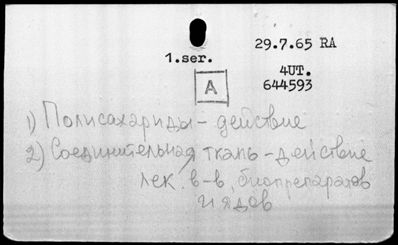 29.7.65 RA
1.ser.
4UT.
644593
A
1) Полисахариды - действие
2) Соединительная ткань - действие
лек. в-в, биопрепаратов
и ядов